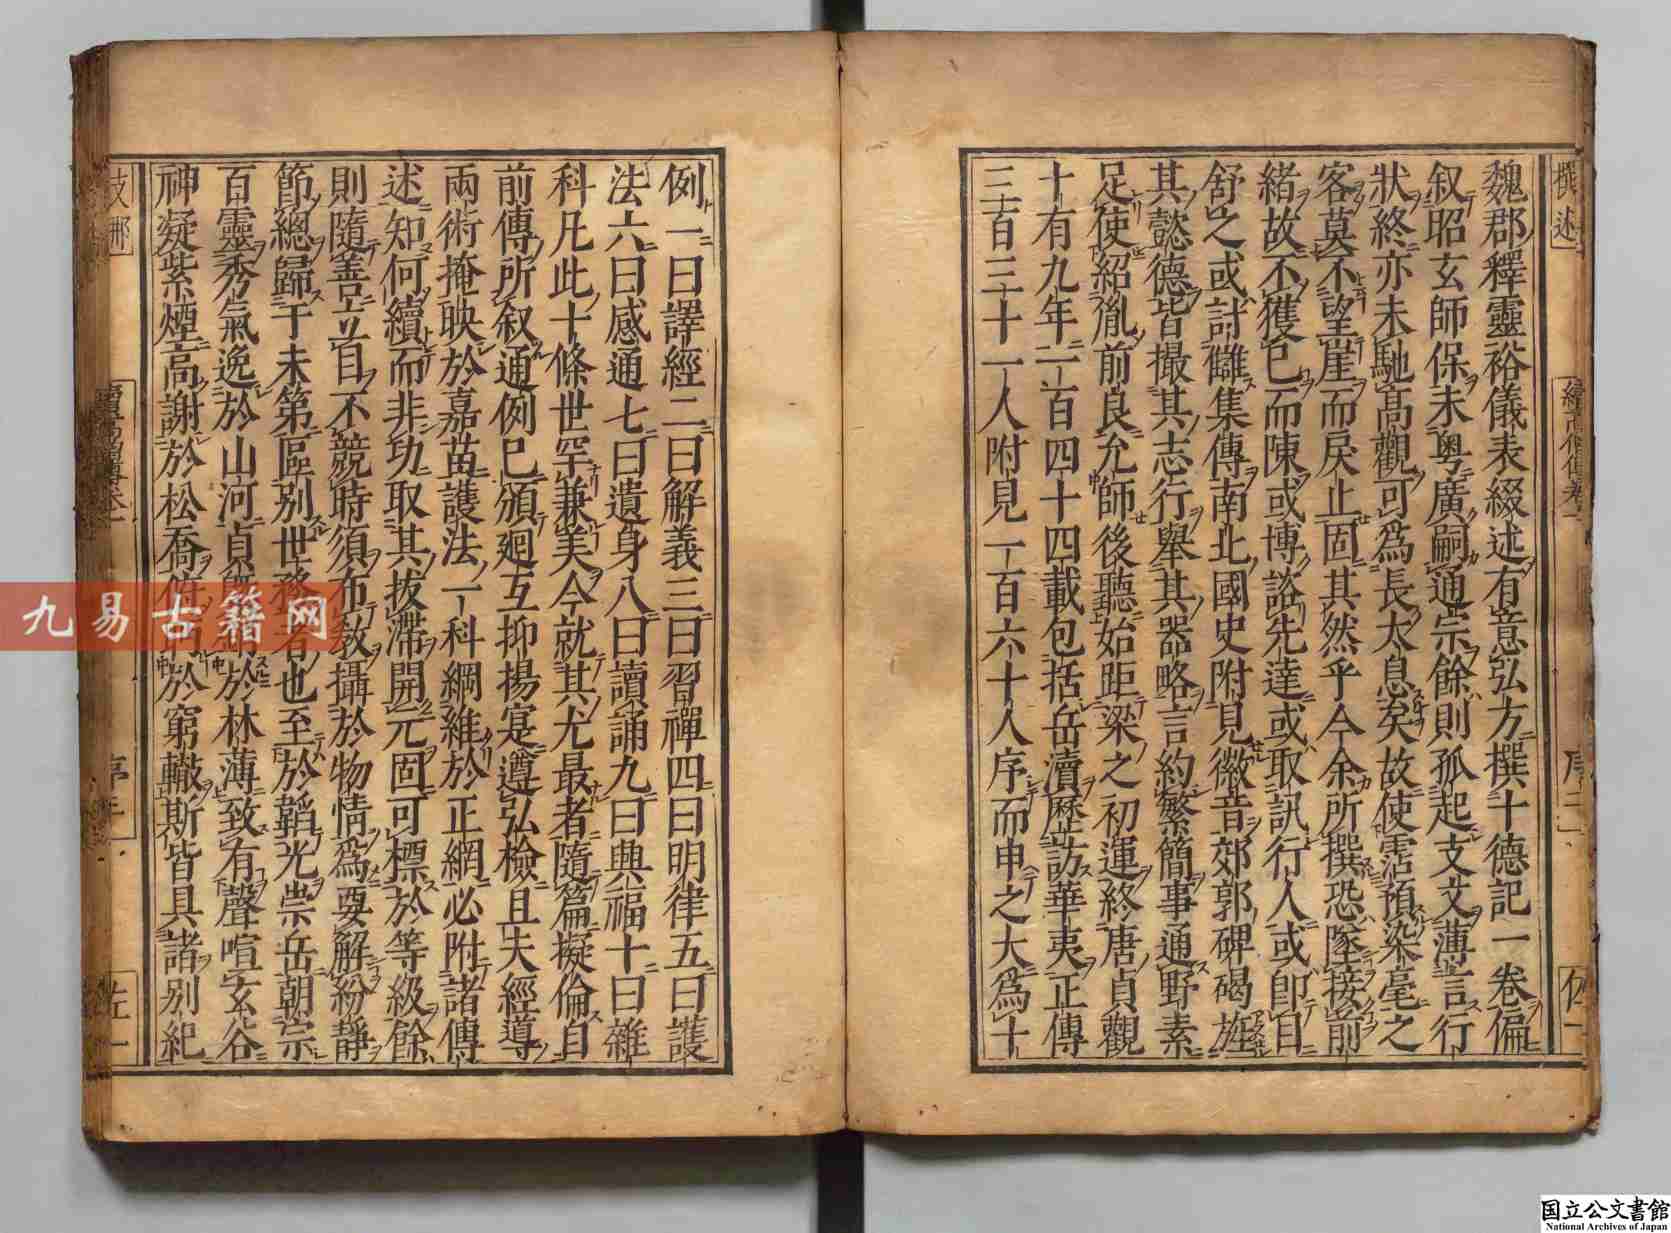 魏郡釋靈裕儀表綴述有意弘方撰十德記一卷偏
叙昭玄師保未粤廣嗣通宗餘則孤起支文薄言行
狀終亦未馳高觀可爲長太息矣故使霑預染毫之
客莫不望崖而戾止固其然乎今余所撰恐墜接前
緒故不獲已而陳或博諮先達或取訊行人或即目
舒之或討讎集傳南北國史附見徽音郊郭碑碣旌
其懿德皆撮其志行舉其器略言約繁簡事通野素
足使紹胤前良允師後聽始距梁之初運終唐貞觀
十有九年一百四十四載包括岳瀆歷訪華夷正傳
三百三十一人附見一百六十人序而申之大爲十
例一曰譯經二曰解義三曰習禪四曰明律五曰護
法六曰感通七曰遺身八曰讀誦九曰興福十曰雜
科凡此十條世罕兼美今就其尤最者隨篇擬倫自
前傳所叙通例已頒迴互抑揚寔遵弘檢且夫經導
兩術掩映於嘉苗護法一科綱維於正網必附諸傳
述知何續而非功取其拔滯開元固可標於等級餘
則隨善立目不競時須布教攝於物情爲要解紛靜
節總歸于未第區別世務者也至於韜光崇岳朝宗
百靈秀氣逸於山河貞於林薄致有聲喧玄谷
神凝紫煙高謝於松喬於窮轍斯皆具諸別紀
撰述
續高僧傳卷一
支那
續高僧傳卷一
九易古籍网
国立公文書館
National Archives of Japan